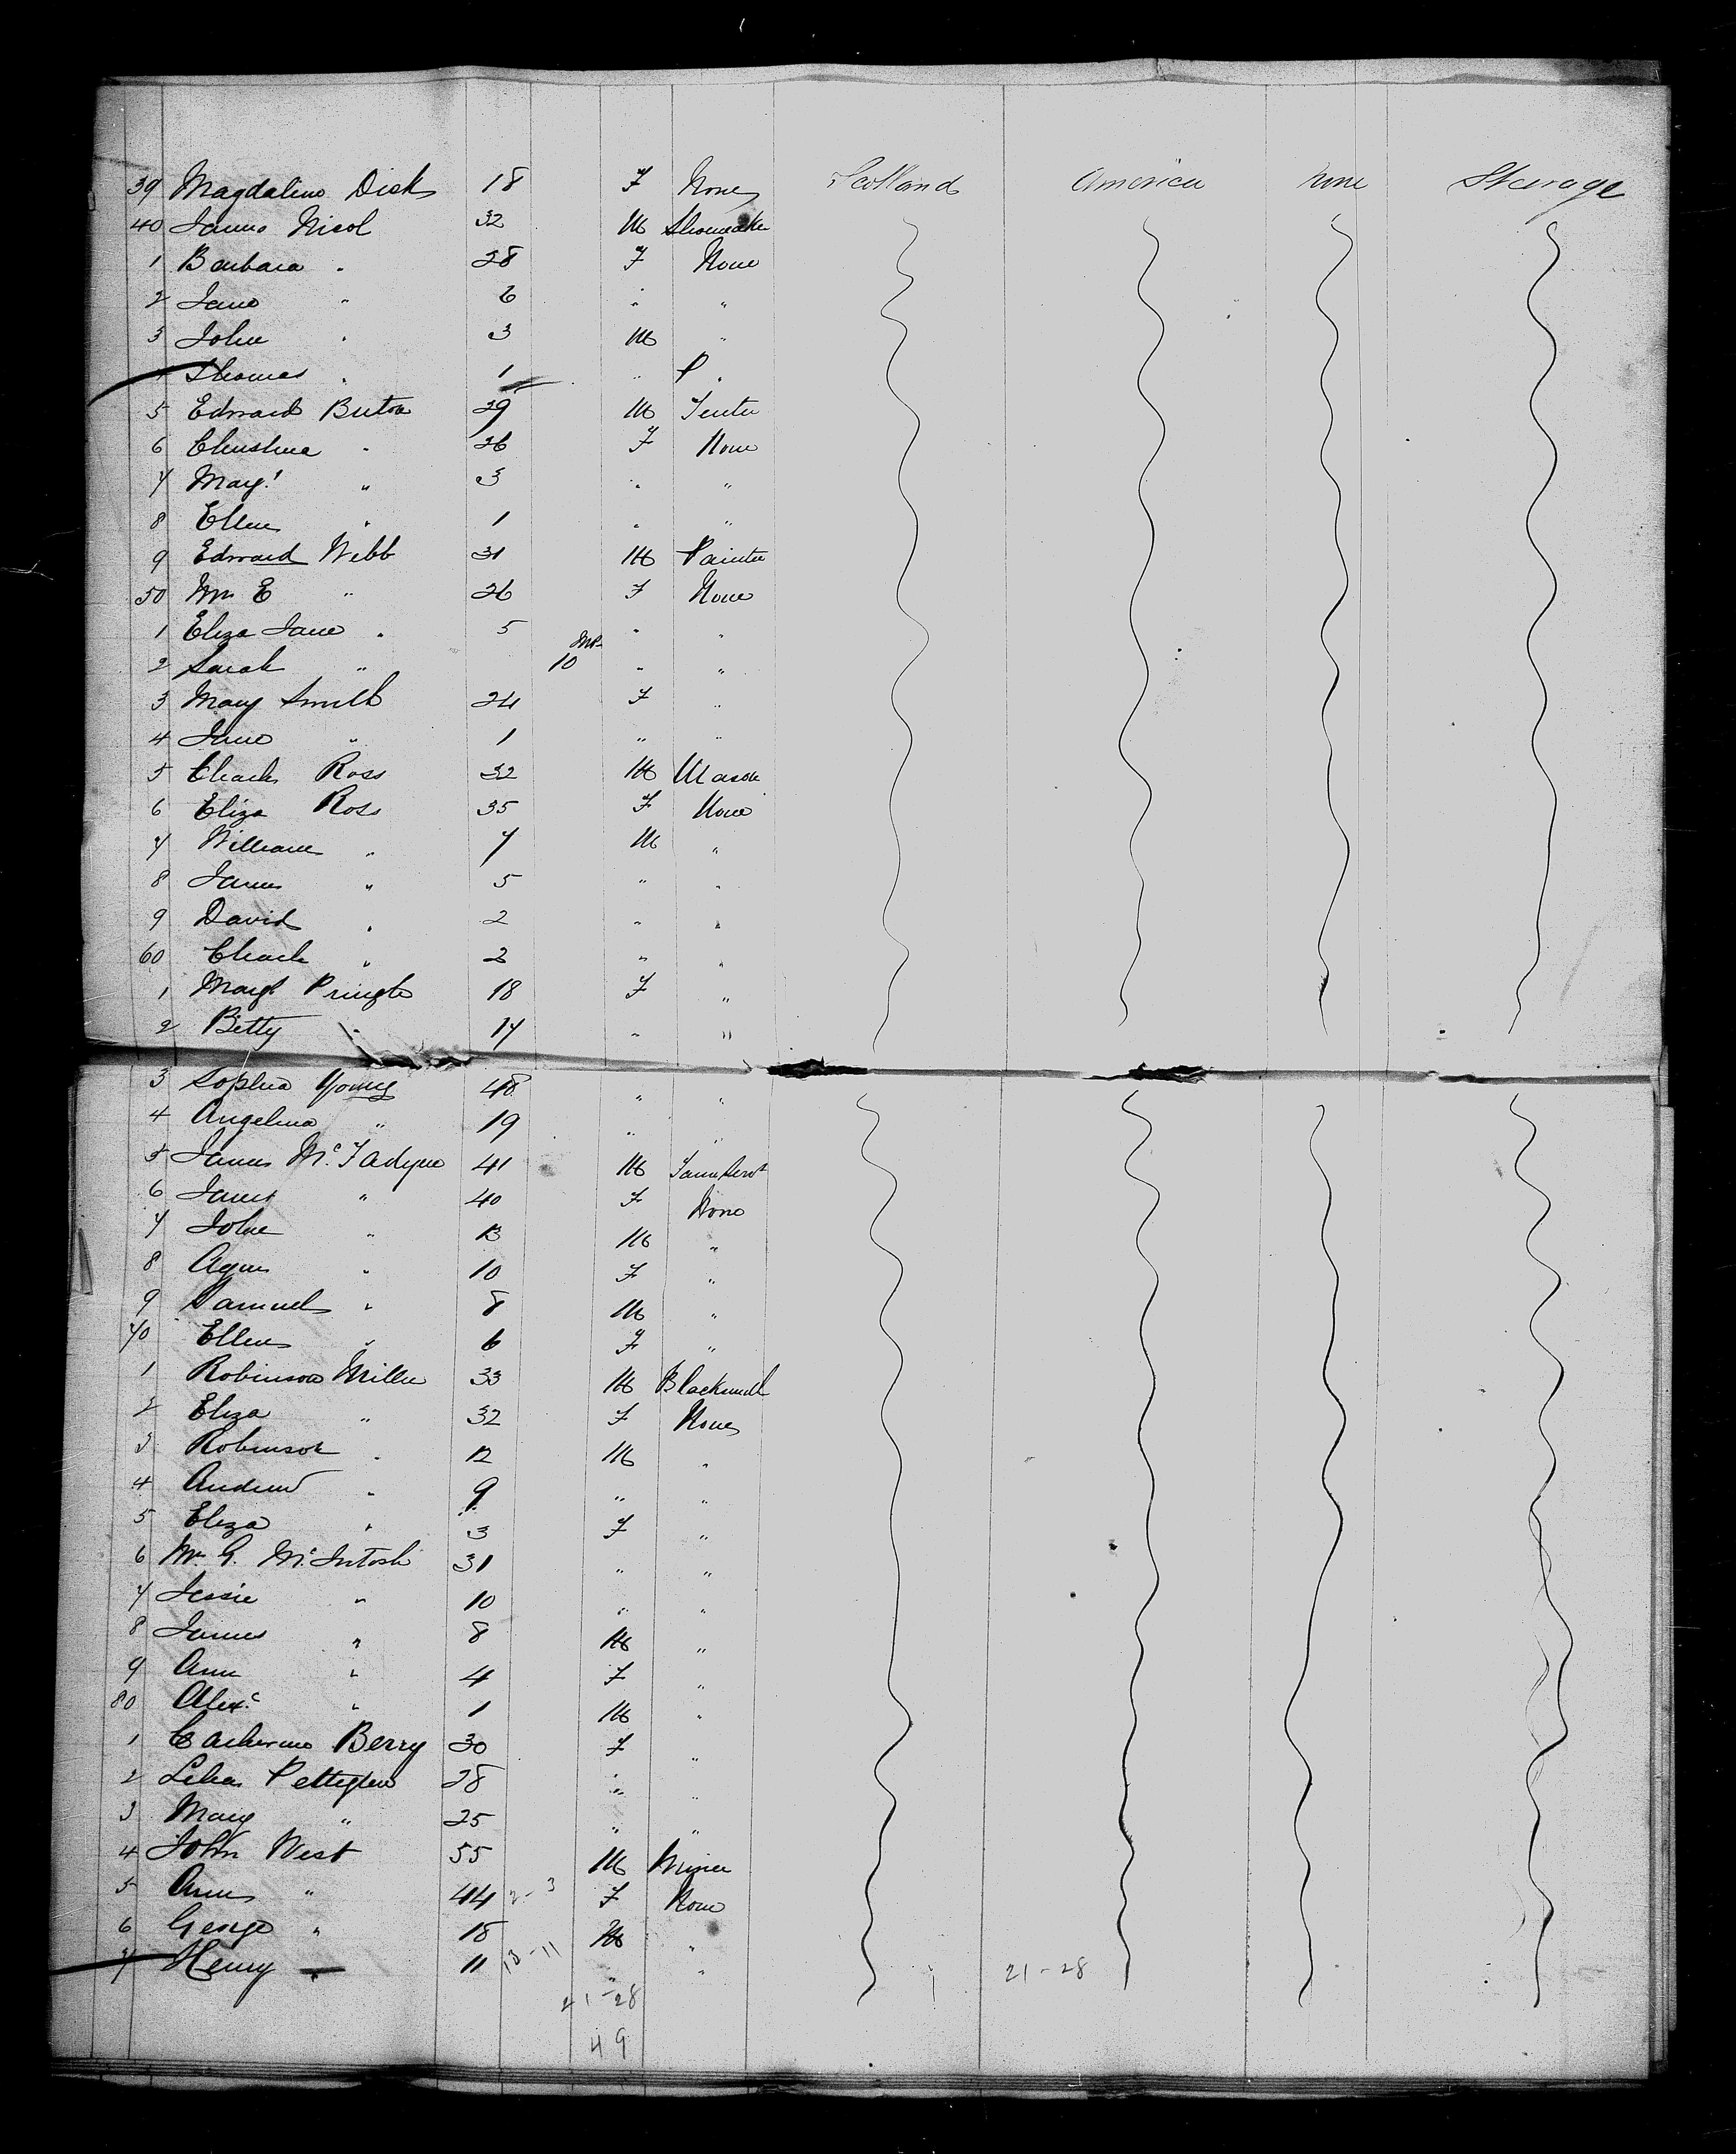 39 Magdalino Dick 18 F None Scotland America none Sterage
40 James Nicol 32 M Shomaker
1 Barbara " 28 F None
2 Jane " 6 " "
3 John " 3 M "
Thomas " 1 " "
5 Edward Buton 29 M
6 Christina " 26 F None
7 Margt " 3 " "
8 Ellen " 1 " "
9 Edward Webb 31 M Painter
50 Mrs E " 26 F None
1 Eliza Jane " 5 " "
2 Sarah " 10 " "
3 Mary Smith 24 F "
4 Jane " 1 " "
5 Charles Ross 32 M Mason
6 Eliza Ross 35 F None
7 William " 7 M "
8 James " 5 " "
9 David " 2 " "
60 Charles " 2 " "
1 Margt Pringle 18 F "
2 Betty " 17 " "
3 Sophia Young 48 " "
4 Angelina " 19 " "
5 James McFadyen 41 M
6 Janet " 40 F None
7 John " 13 M "
8 Agnes " 10 F "
9 Samuel " 8 M "
70 Ellen " 6 F "
1 Robinson Miller 33 M Blacksmith
2 Eliza " 32 F None
3 Robinson " 12 M "
4 Andrew " 9 " "
5 Eliza " 3 F "
6 Mrs G. McIntosh 31 " "
7 Jessie " 10 " "
8 James " 8 M "
9 Ann " 4 F "
80 Alexr " 1 M "
1 Catherine Berry 30 F "
2 Lilias Pettigrew 28 " "
3 Mary " 25 " "
4 John West 55 M Miner
5 Ann " 44 2-3 F None
6 George " 18 M "
7 Henry " 11 13-11 " "
21-28 21-28
49